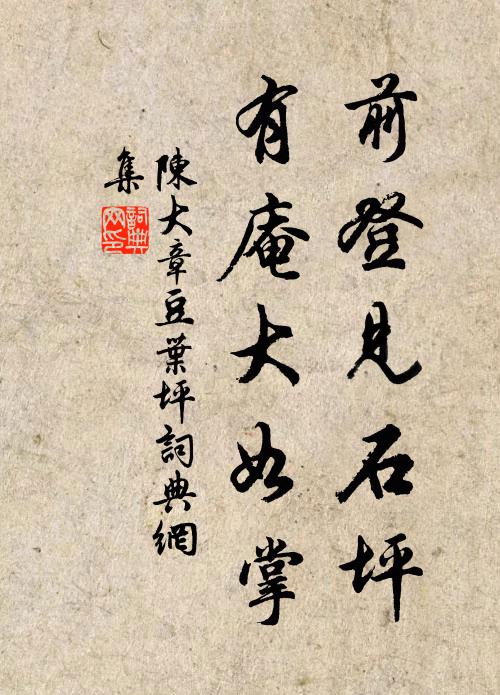 前登見石坪
有庵大如掌
陳大章豆葉坪詞典網
集
詞典
网印